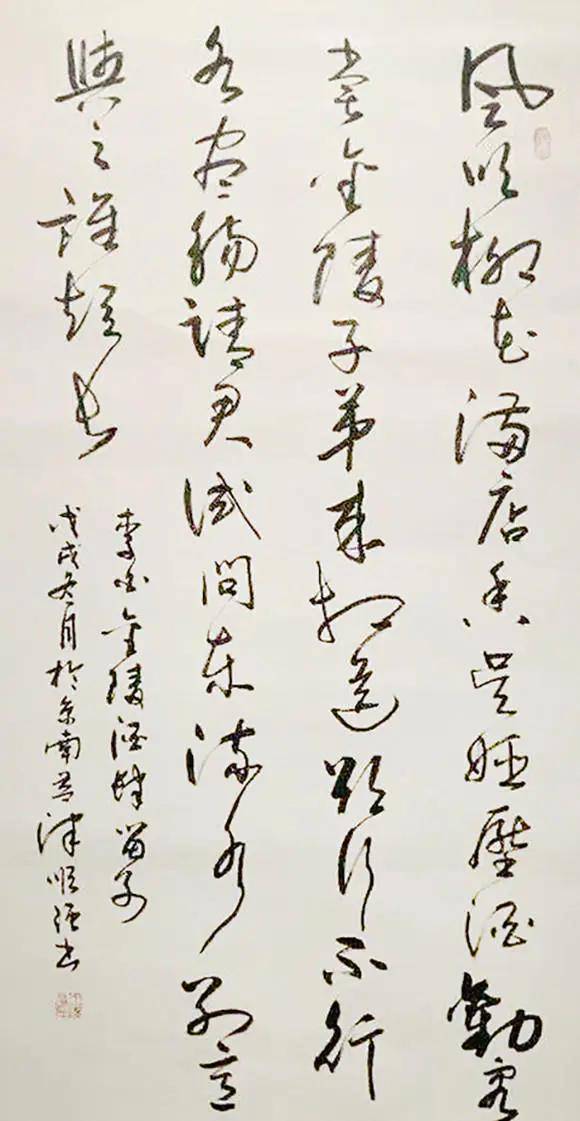 風吹柳花滿店香吳姬壓酒勸客
嘗金陵子弟來相送欲行不行
各盡觴請君試問東流水別意
與之誰短長
李白金陵酒肆留別
戊戌冬月於京南
順強書